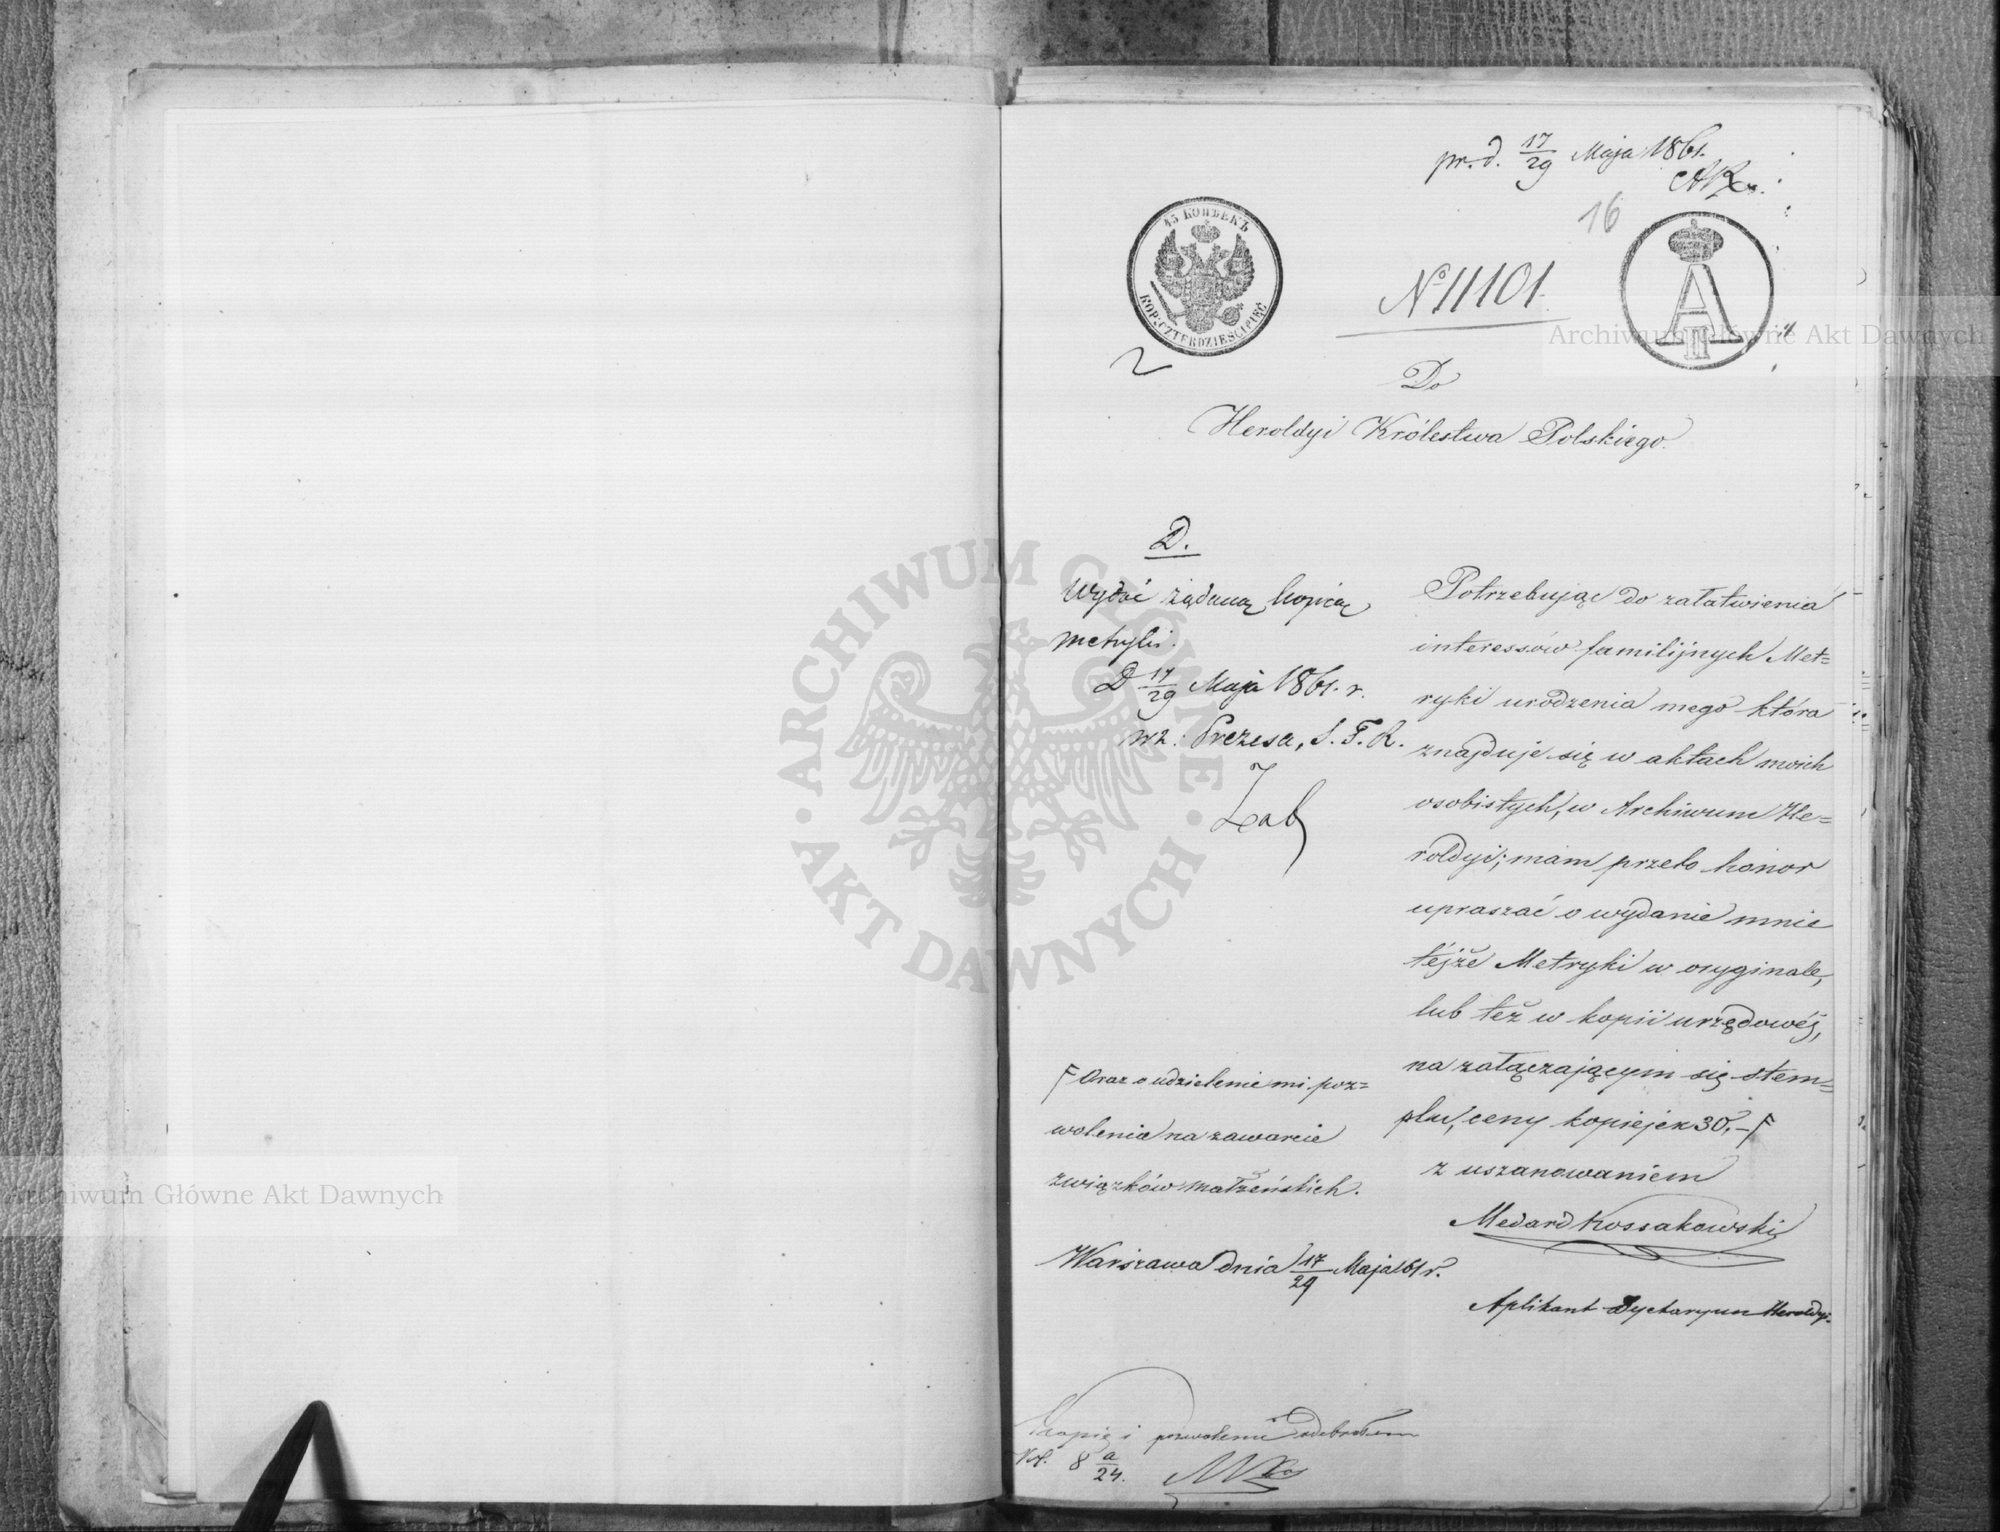 pr. d. 17/29 Maja 1861.
16
45 КОПѢЕКЪ
KOP: CZTERDZIEŚCI PIĘĆ
№ 11101.
A II
Do
Heroldyi Królestwa Polskiego.
D.
Wydać żądaną kopią
metryki.
D 17/29 Maja 1861. r.
wz. Prezesa, S. T. R.
Potrzebując do załatwienia
interessów familijnych Met=
ryki urodzenia mego która
znajduje się w aktach moich
osobistych, w Archiwum He=
roldyi; mam przeto honor
upraszać o wydanie mnie
téjże Metryki w oryginale,
lub też w kopii urzędowéj,
na załączającym się stem=
plu, ceny kopiejek 30. – F
z uszanowaniem
Medard Kossakowski
Aplikant Dyetaryusz Heroldyi.
F Oraz o udzielenie mi poz=
wolenia na zawarcie
związków małżeńskich.
Warszawa dnia 17/29 Maja 61 r.
Kopię i pozwolenie odebrałem
8 a/24.
ARCHIWUM GŁÓWNE
AKT DAWNYCH
Archiwum Główne Akt Dawnych
Archiwum Główne Akt Dawnych